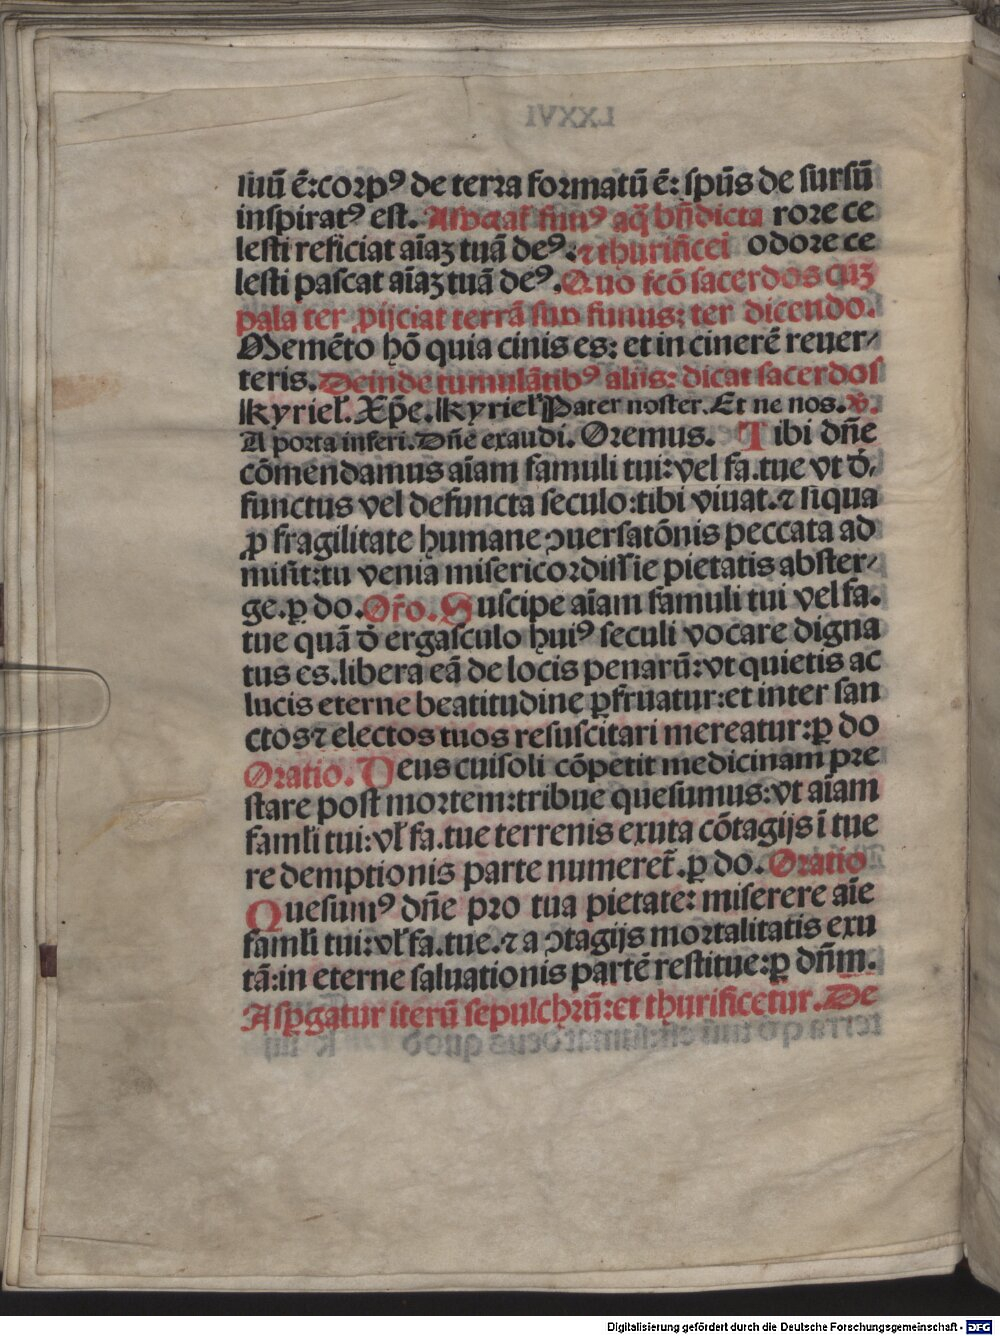 LXXVI
suũ ẽ:corpꝰ de terra formatũ ẽ: spũs de sursũ
inspiratꝰ est. Aspergat᷑ funꝰ aq̃ bñdicta rore ce
lesti reficiat aĩaʒ tuã deꝰ.: ⁊ thurificet᷑ odore ce
lesti pascat aĩaʒ tuã deꝰ. Quo fcõ sacerdos cuʒ
pala ter ꝓijciat terrã sup funus: ter dicendo.
Memẽto hõ quia cinis es: et in cinerẽ reuer⸗
teris. Deinde tumulãtibꝰ aliis: dicat sacerdos
Kyriel̉. Xp̃e. Kyriel̉ Pater noster. Et ne nos. V.
A porta inferi. Dñe exaudi. Oremus. Tibi dñe
cõmendamus aĩam famuli tui: vel fa. tue vt d̃⸗
functus vel defuncta seculo: tibi viuat. ⁊ si qua
ꝓ fragilitate humane ↄuersatõnis peccata ad
misit: tu venia misericordissĩe pietatis abster⸗
ge. ꝑ do. Or̃o. Suscipe aĩam famuli tui vel fa.
tue quã d̃ ergasculo huiꝰ seculi vocare digna
tus es. libera eã de locis penarũ: vt quietis ac
lucis eterne beatitudine ꝑfruatur: et inter san
ctos ⁊ electos tuos resuscitari mereatur: ꝑ do
Oratio. Deus cui soli cõpetit medicinam pre
stare post mortem: tribue quesumus: vt aĩam
famli tui: vl̉ fa. tue terrenis exuta cõtagijs ĩ tue
redemptionis parte numeret᷑. ꝑ do. Oratio
Quesumꝰ dñe pro tua pietate: miserere aĩe
famli tui: vl̉ fa. tue. ⁊ a ↄtagijs mortalitatis exu
tã: in eterne saluationis partẽ restitue: ꝑ dñm.
Asꝑgatur iterũ sepulchrũ: et thurificetur. De
Digitalisierung gefördert durch die Deutsche Forschungsgemeinschaft - DFG